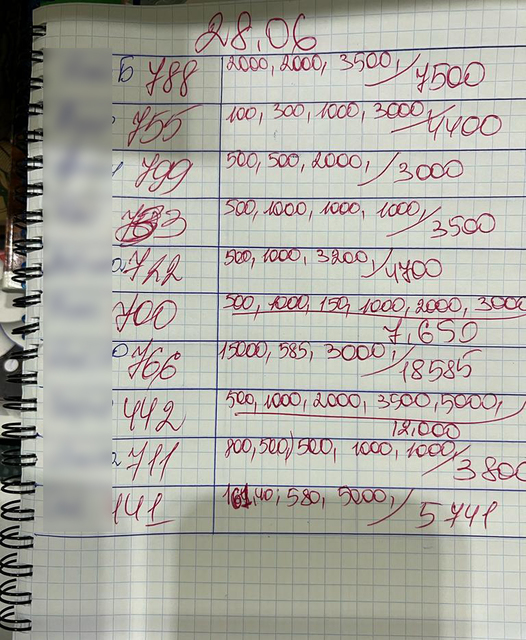 28.06
Б 788 2000, 2000, 3500, / 7500
755 100, 300, 1000, 3000, / 4400
799 500, 500, 2000, / 3000
500, 1000, 1000, 1000, / 3500
722 500, 1000, 3200, / 4700
700 500, 1000, 150, 1000, 2000, 3000
7,650
766 15000, 585, 3000, / 18585
442 500, 1000, 2000, 3500, 5000,
12.000
711 800, 500, 500, 1000, 1000, / 3800
141 161, 40, 580, 5000, / 5741